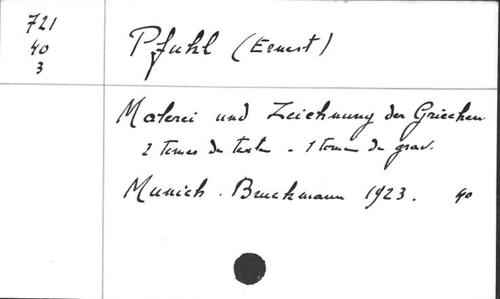 721
40
3
Pfuhl (Ernest)
Malerei und Zeichnung der Griechen
2 Tomes de texte - 1 tome de grav.
Munich. Bruckmann 1923. 40